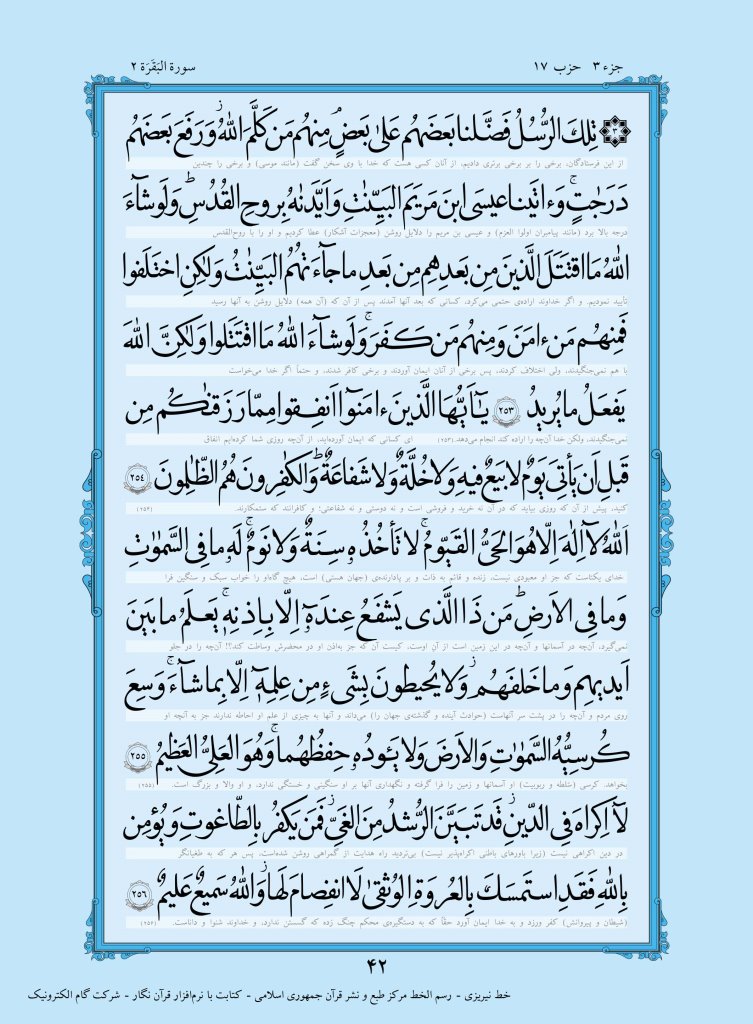 جزء ۳ حزب ۱۷ سورة البَقَرَة ۲
۳ تِلكَ الرُّسُلُ فَضَّلنا بَعضَهُم عَلىٰ بَعضٍ مِنهُم مَن كَلَّمَ اللهُ وَرَفَعَ بَعضَهُم
از این فرستادگان، برخی را بر برخی برتری دادیم، از آنان کسی هست که خدا با وی سخن گفت (مانند موسی) و برخی را چندین
دَرَجٰتٍ وَءاتَينا عيسَى ابنَ مَريَمَ البَيِّنٰتِ وَاَيَّدنٰهُ بِروحِ القُدُسِ وَلَو شآءَ
درجه بالا برد (مانند پیامبران اولوا العزم) و عیسی بن مریم را دلایلی روشن (معجزات آشکار) عطا کردیم و او را با روح‌القدس
اللهُ مَا اقتَتَلَ الَّذينَ مِن بَعدِهِم مِن بَعدِ ما جآءَتهُمُ البَيِّنٰتُ وَلٰكِنِ اختَلَفوا
تأیید نمودیم. و اگر خداوند اراده‌ی حتمی می‌کرد، کسانی که بعد آنها آمدند پس از آن که (آن همه) دلایل روشن به آنها رسید
فَمِنهُم مَن ءامَنَ وَمِنهُم مَن كَفَرَ وَلَو شآءَ اللهُ مَا اقتَتَلوا وَلٰكِنَّ اللهَ
با هم نمی‌جنگیدند، ولی اختلاف کردند، پس برخی از آنان ایمان آوردند و برخی کافر شدند، و حتماً اگر خدا می‌خواست
يَفعَلُ ما يُريدُ ۲۵۳ يٰٓاَيُّهَا الَّذينَ ءامَنوٓا اَنفِقوا مِمّا رَزَقنٰكُم مِن
نمی‌جنگیدند، ولکن خدا آن‌چه را اراده کند انجام می‌دهد.(۲۵۳) ای کسانی که ایمان آورده‌اید، از آن‌چه روزی شما کرده‌ایم انفاق
قَبلِ اَن يَأتِيَ يَومٌ لا بَيعٌ فيهِ وَلا خُلَّةٌ وَلا شَفاعَةٌ وَالكٰفِرونَ هُمُ الظّٰلِمونَ ۲۵۴
کنید، پیش از آن که روزی بیاید که در آن نه خرید و فروشی است و نه دوستی و نه شفاعتی؛ و کافرانند که ستمکارند. (۲۵۴)
اَللهُ لآ اِلٰهَ اِلّا هُوَ الحَيُّ القَيّومُ لا تَأخُذُهو سِنَةٌ وَلا نَومٌ لَهو ما فِي السَّمٰوٰتِ
خدای یکتاست که جز او معبودی نیست، زنده و قائم به ذات و بر پادارنده‌ی (جهان هستی) است، هیچ گاه‌او را خواب سبک و سنگین فرا
وَما فِي الاَرضِ مَن ذَا الَّذي يَشفَعُ عِندَهوٓ اِلّا بِاِذنِهٖ يَعلَمُ ما بَينَ
نمی‌گیرد، آن‌چه در آسمانها و آن‌چه در این زمین است از آن اوست، کیست آن که جز به‌اذن او در محضرش وساطت کند؟! آن‌چه را در جلو
اَيديهِم وَما خَلفَهُم وَلا يُحيطونَ بِشَيءٍ مِن عِلمِهٖٓ اِلّا بِما شآءَ وَسِعَ
روی مردم و آن‌چه را در پشت سر آنهاست (حوادث آینده و گذشته‌ی جهان را) می‌داند و آنها به چیزی از علم او احاطه ندارند جز به آنچه او
كُرسِيُّهُ السَّمٰوٰتِ وَالاَرضَ وَلا يَـودُهو حِفظُهُما وَهُوَ العَلِيُّ العَظيمُ ۲۵۵
بخواهد. کرسی (سلطه و ربوبیت) او آسمانها و زمین را فرا گرفته و نگهداری آنها بر او سنگینی و خستگی ندارد، و او والا و بزرگ است. (۲۵۵)
لآ اِكراهَ فِي الدّينِ قَد تَبَيَّنَ الرُّشدُ مِنَ الغَيِّ فَمَن يَكفُر بِالطّاغوتِ وَيُؤمِن
در دین اکراهی نیست (زیرا باورهای باطنی اکراه‌پذیر نیست) بی‌تردید راه هدایت از گمراهی روشن شده‌است، پس هر که به طغیانگر
بِاللهِ فَقَدِ استَمسَكَ بِالعُروَةِ الوُثقىٰ لَا انفِصامَ لَها وَاللهُ سَميعٌ عَليمٌ ۲۵۶
(شیطان و پیروانش) کفر ورزد و به خدا ایمان آورد حقاً که به دستگیره‌ی محکم چنگ زده که گسستن ندارد، و خداوند شنوا و داناست. (۲۵۶)
۴۲
خط نیریزی - رسم الخط مرکز طبع و نشر قرآن جمهوری اسلامی - کتابت با نرم‌افزار قرآن نگار - شرکت گام الکترونیک